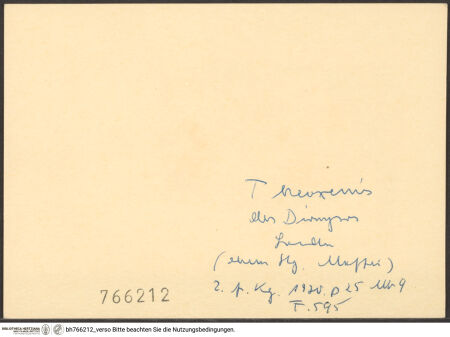 Theoxenis
des Dionysos
London
(ehem Slg. Maffei)
Z. f. Kg. 1970. p 25 Abb 9
F. 595
766212
BIBLIOTHECA HERTZIANA bh766212_verso Bitte beachten Sie die Nutzungsbedingungen.